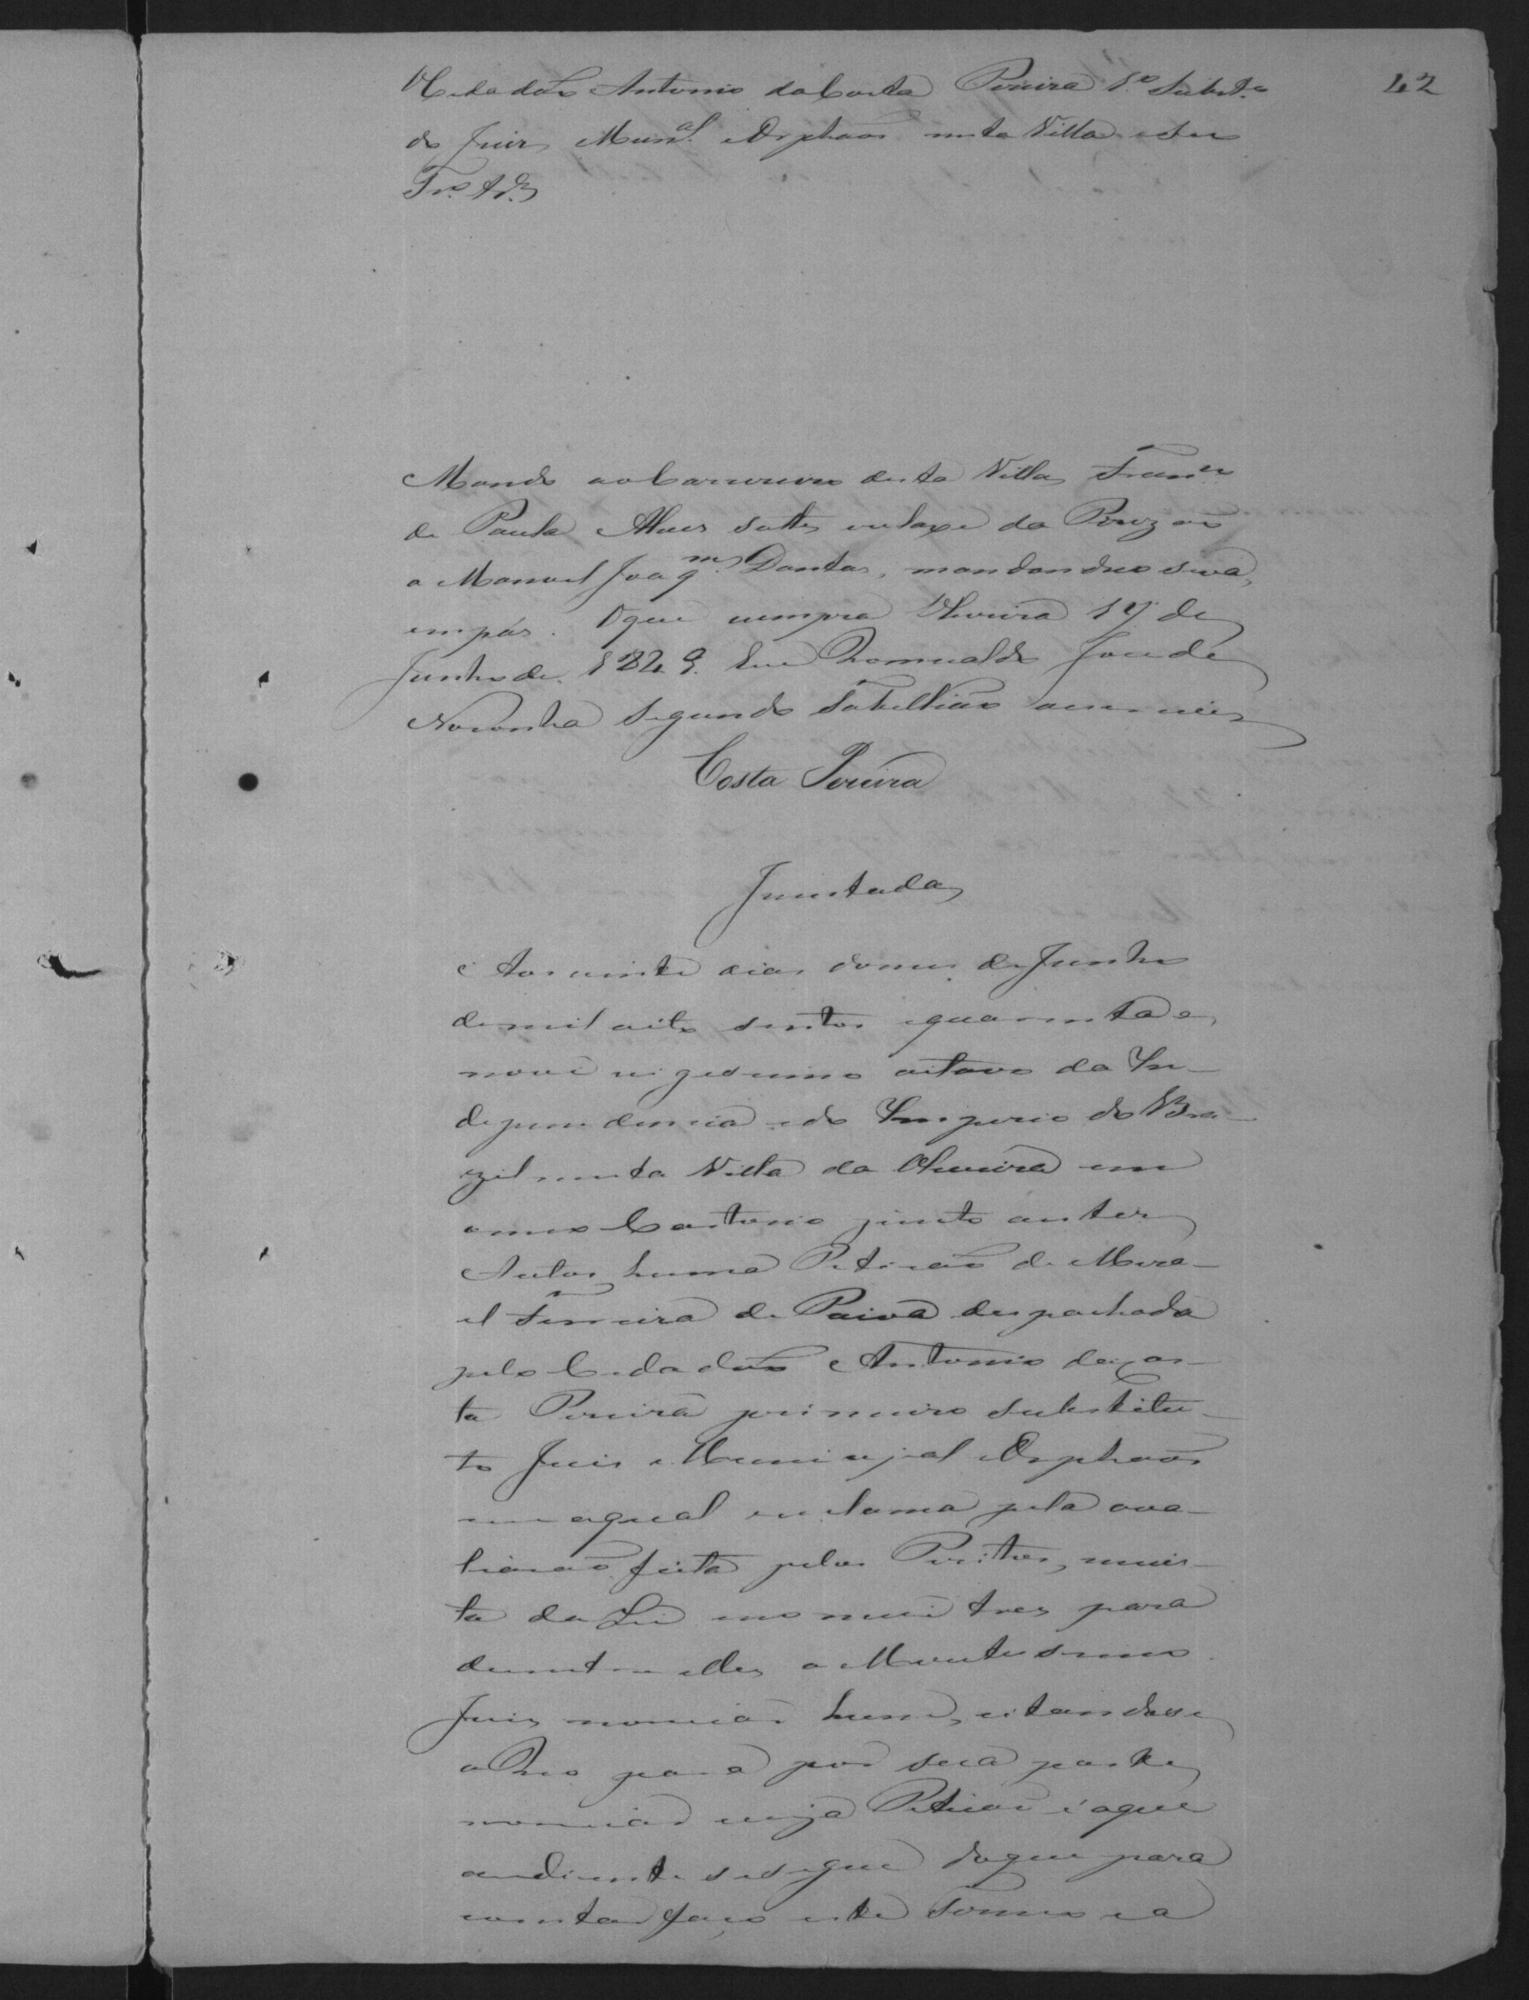 42
O Cidadão Antonio da Costa Pereira 1.º Subst.º
do Juiz Mun.al e Orphaos nesta Villa e seu
Tr.º &.ª
Mando ao Carcereiro desta Villa Fran.co
de Paula Alves solte e relaxe da Prizaõ
a Manoel Joaq.m Dantas, mandandoo siva
em pás. O que cumpra Oliveira 19 de
Junho de 1849. Eu Romualdo Jose de
Noronha Segundo Tabelliaõ escrevi
Costa Pereira
Juntada
Aos vinte dias do mes de Junho
de mil oito sentos e quarenta e
nove vigessimo oitavo da In-
dependencia e do Imperio do Bra-
zil nesta Villa da Oliveira em
o meo Cartorio junto a estes
Autos huma Peticaõ de Mano-
el Ferreira de Paiva despachada
pelo Cidadaõ Antonio da Cos-
ta Pereira primeiro substitu-
to Juis Municipal e Orphaos
em a qual reclama pela ava-
liacaõ feita pelos Peritos, e
ta da Lei nomeie tres para
dentre elles o Meretissimo
Juis nomiar hum, citandose
o Reo para por sua parte
nomiar cuja Peticaõ é a que
ao diente se segue do que para
constar faço este Termo e a